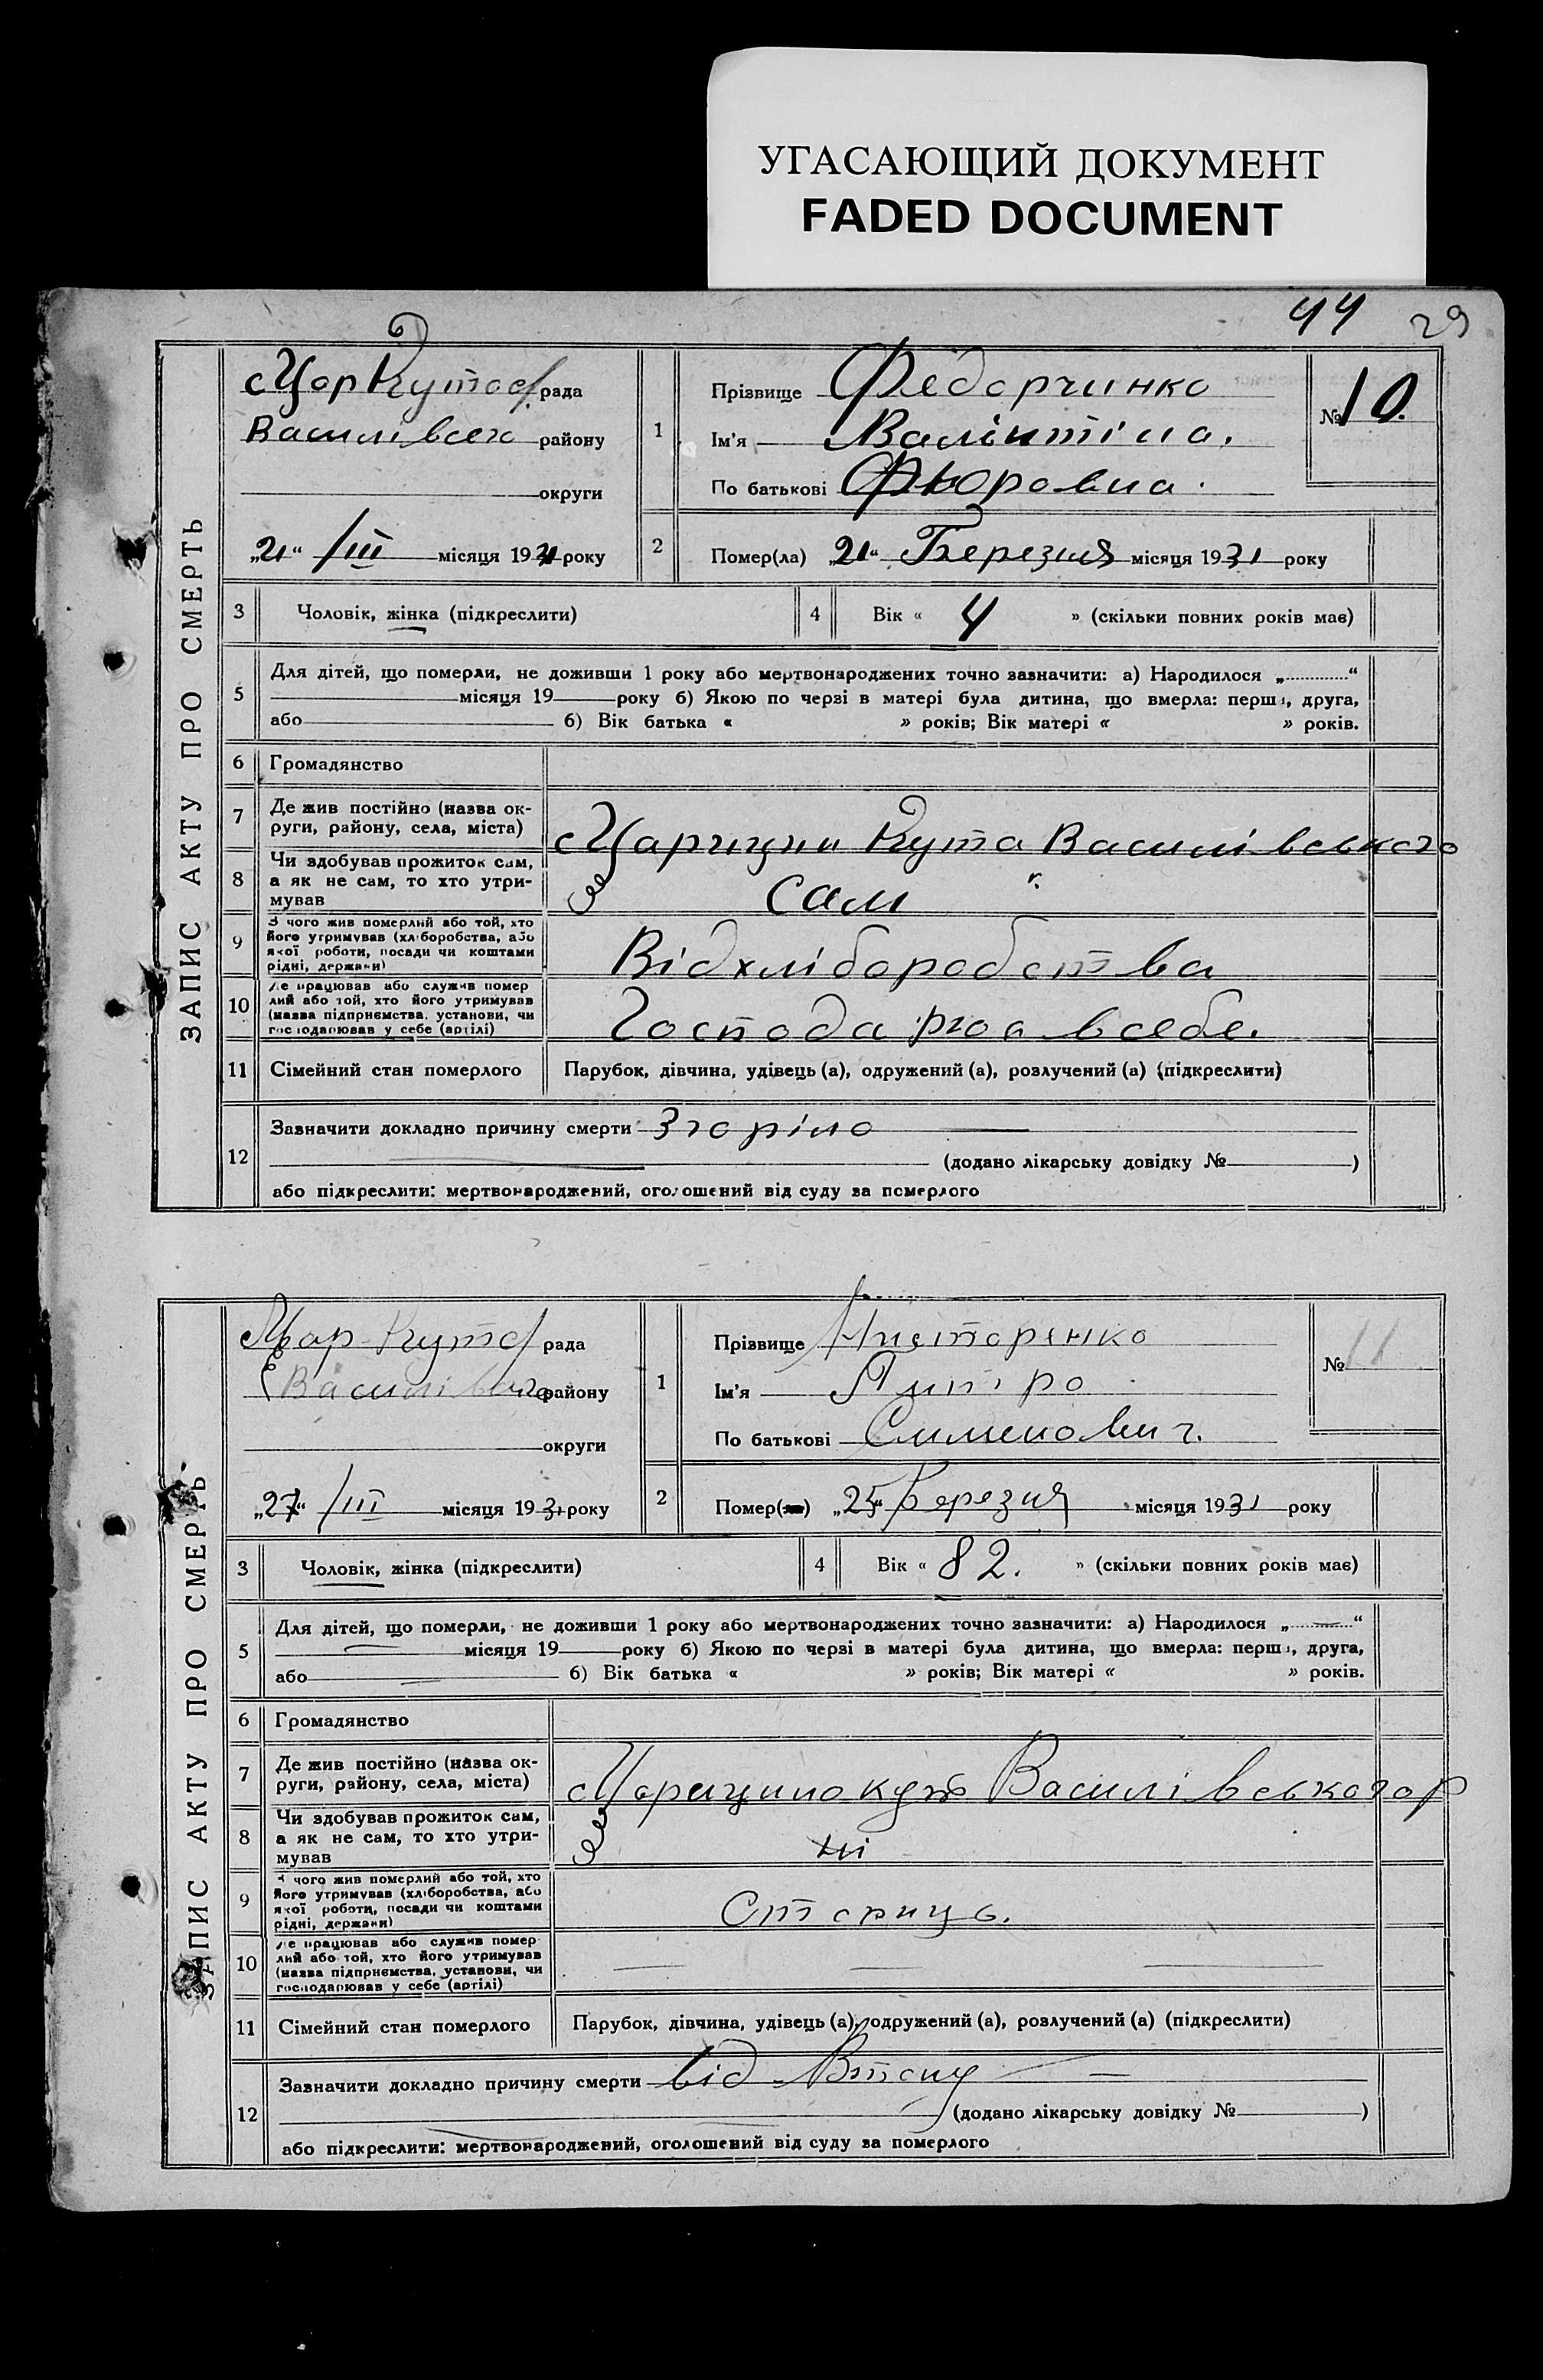 УГАСАЮЩИЙ ДОКУМЕНТ
FADED DOCUMENT
44 29
ЗАПИС АКТУ ПРО СМЕРТЬ
ЦарКутос рада
Василівсего району
округи
„21“ /III місяця 1931 року
1
Прізвище Федорчинко
Ім'я Валінтіна.
По батькові
№ 10.
2 Помер(ла) „21“ Березня місяця 1931 року
3 Чоловік, жінка (підкреслити)
4 Вік « 4 » (скільки повних років має)
5 Для дітей, що померли, не доживши 1 року або мертвонароджених точно зазначити: а) Народилося „ “
місяця 19 року б) Якою по черзі в матері була дитина, що вмерла: перша, друга,
або б) Вік батька « » років; Вік матері « » років.
6 Громадянство
7 Де жив постійно (назва ок-
руги, району, села, міста)
Царицин Кута Василівського
8 Чи здобував прожиток сам,
а як не сам, то хто утри-
мував
сам
9 З чого жив померлий або той, хто
його утримував (хліборобства, або
якої роботи, посади чи коштами
рідні, держави)
Відхліборобства
10 Де працював або служив помер
лий або той, хто його утримував
(назва підприємства, установи, чи
господарював у себе (артілі)
Господарюа всебе.
11 Сімейний стан померлого Парубок, дівчина, удівець (а), одружений (а), розлучений (а) (підкреслити)
12 Зазначити докладно причину смерти Згоріла
(додано лікарську довідку № )
або підкреслити: мертвонароджений, оголошений від суду за померлого
ЗАПИС АКТУ ПРО СМЕРТЬ
Цар-Кутс рада
Василівсего району
округи
„27“ /III місяця 1931 року
1
Прізвище Нисторенко
Ім'я
По батькові Сименович.
№ 11
2 Помер(ла) „25“ Березня місяця 1931 року
3 Чоловік, жінка (підкреслити)
4 Вік « 82. » (скільки повних років має)
5 Для дітей, що померли, не доживши 1 року або мертвонароджених точно зазначити: а) Народилося „ “
місяця 19 року б) Якою по черзі в матері була дитина, що вмерла: перша, друга,
або б) Вік батька « » років; Вік матері « » років.
6 Громадянство
7 Де жив постійно (назва ок-
руги, району, села, міста)
Царицино кут Василівського р
8 Чи здобував прожиток сам,
а як не сам, то хто утри-
мував
ні
9 З чого жив померлий або той, хто
його утримував (хліборобства, або
якої роботи, посади чи коштами
рідні, держави)
Стариць.
10 Де працював або служив помер
лий або той, хто його утримував
(назва підприємства, установи, чи
господарював у себе (артілі)
11 Сімейний стан померлого Парубок, дівчина, удівець (а), одружений (а), розлучений (а) (підкреслити)
12 Зазначити докладно причину смерти від
(додано лікарську довідку № )
або підкреслити: мертвонароджений, оголошений від суду за померлого